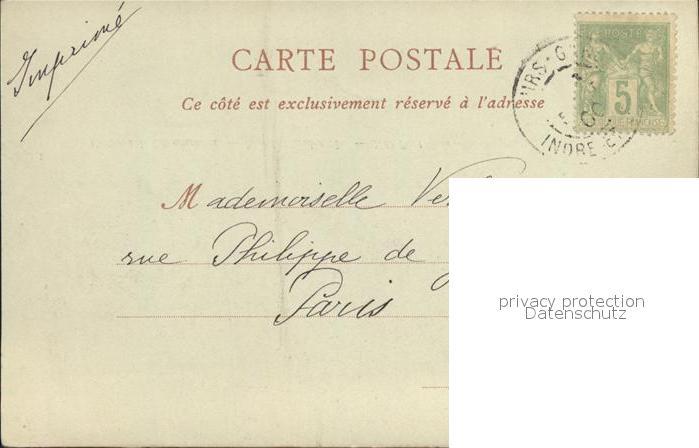 Imprimé
CARTE POSTALE
Ce côté est exclusivement réservé à l'adresse
POSTE
5
INDRE
Mademoiselle
rue Philippe de
Paris
privacy protection
Datenschutz